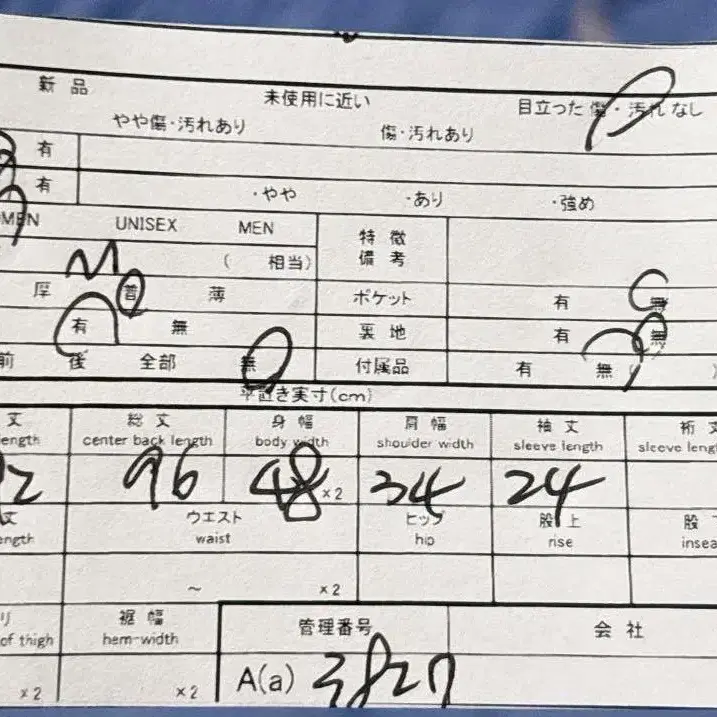 新品 未使用に近い 目立った傷・汚れなし
やや傷・汚れあり 傷・汚れあり
有
有 ・やや ・あり ・強め
MEN UNISEX MEN 特徴
M ( 相当) 備考
厚 普 薄 ポケット 有 無
有 無 裏地 有 無
前 後 全部 無 付属品 有 無 ( )
平置き実寸(cm)
丈 総丈 身幅 肩幅 袖丈 裄丈
ength center back length body width shoulder width sleeve length sleeve leng
2 96 48 ×2 34 24
丈 ウエスト ヒップ 股上 股下
ength waist hip rise insea
~ ×2
り 裾幅 管理番号 会社
of thigh hem-width
×2 ×2 A(a) 3827